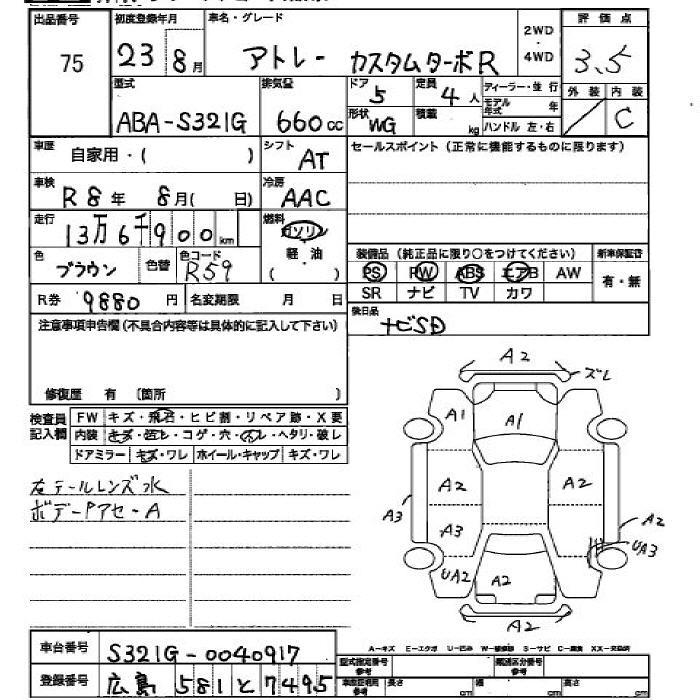 出品番号 初度登録年月 車名・グレード 2WD・4WD 評価点
75 23 8月 アトレー カスタムターボR 3.5
型式 排気量 ドア 5 定員 4人 ディーラー・並行 外装 内装
ABA-S321G 660cc 形状 WG 積載 kg モデル年式 年 C
ハンドル 左・右
車歴 自家用・( ) シフト AT セールスポイント (正常に機能するものに限ります)
車検 R8年 8月( 日) 冷房 AAC
走行 13万6千900km 燃料 ガソリン
軽・油
( )
色 ブラウン 色替 色コード R59 装備品 (純正品に限り○をつけてください) 新車保証書
PS PW ABS エアB AW 有・無
R券 9880円 名変期限 月 日 SR ナビ TV カワ
注意事項申告欄(不具合内容等は具体的に記入して下さい) 後日品 ナビSD
修復歴 有 〔箇所 〕
検査員記入欄 FW キズ・飛石・ヒビ割・リペア跡・X要
内装 キズ・汚レ・コゲ・穴・スレ・ヘタリ・破レ
ドアミラー キズ・ワレ ホイール・キャップ キズ・ワレ
右テールレンズ水
ボデーアセ-A
A2
ズレ
A1 A1
A2 A2
A3 A3 A2
UA3
UA2 A2
A2
A-キズ E-エクボ U-凹み W-補修跡 S-サビ C-腐食 XX-交換済
車台番号 S321G-0040917 型式指定番号 参考 類別区分番号 参考
登録番号 広島 581 と 7495 車庫証明用 参考 長さ cm 幅 cm 高さ cm